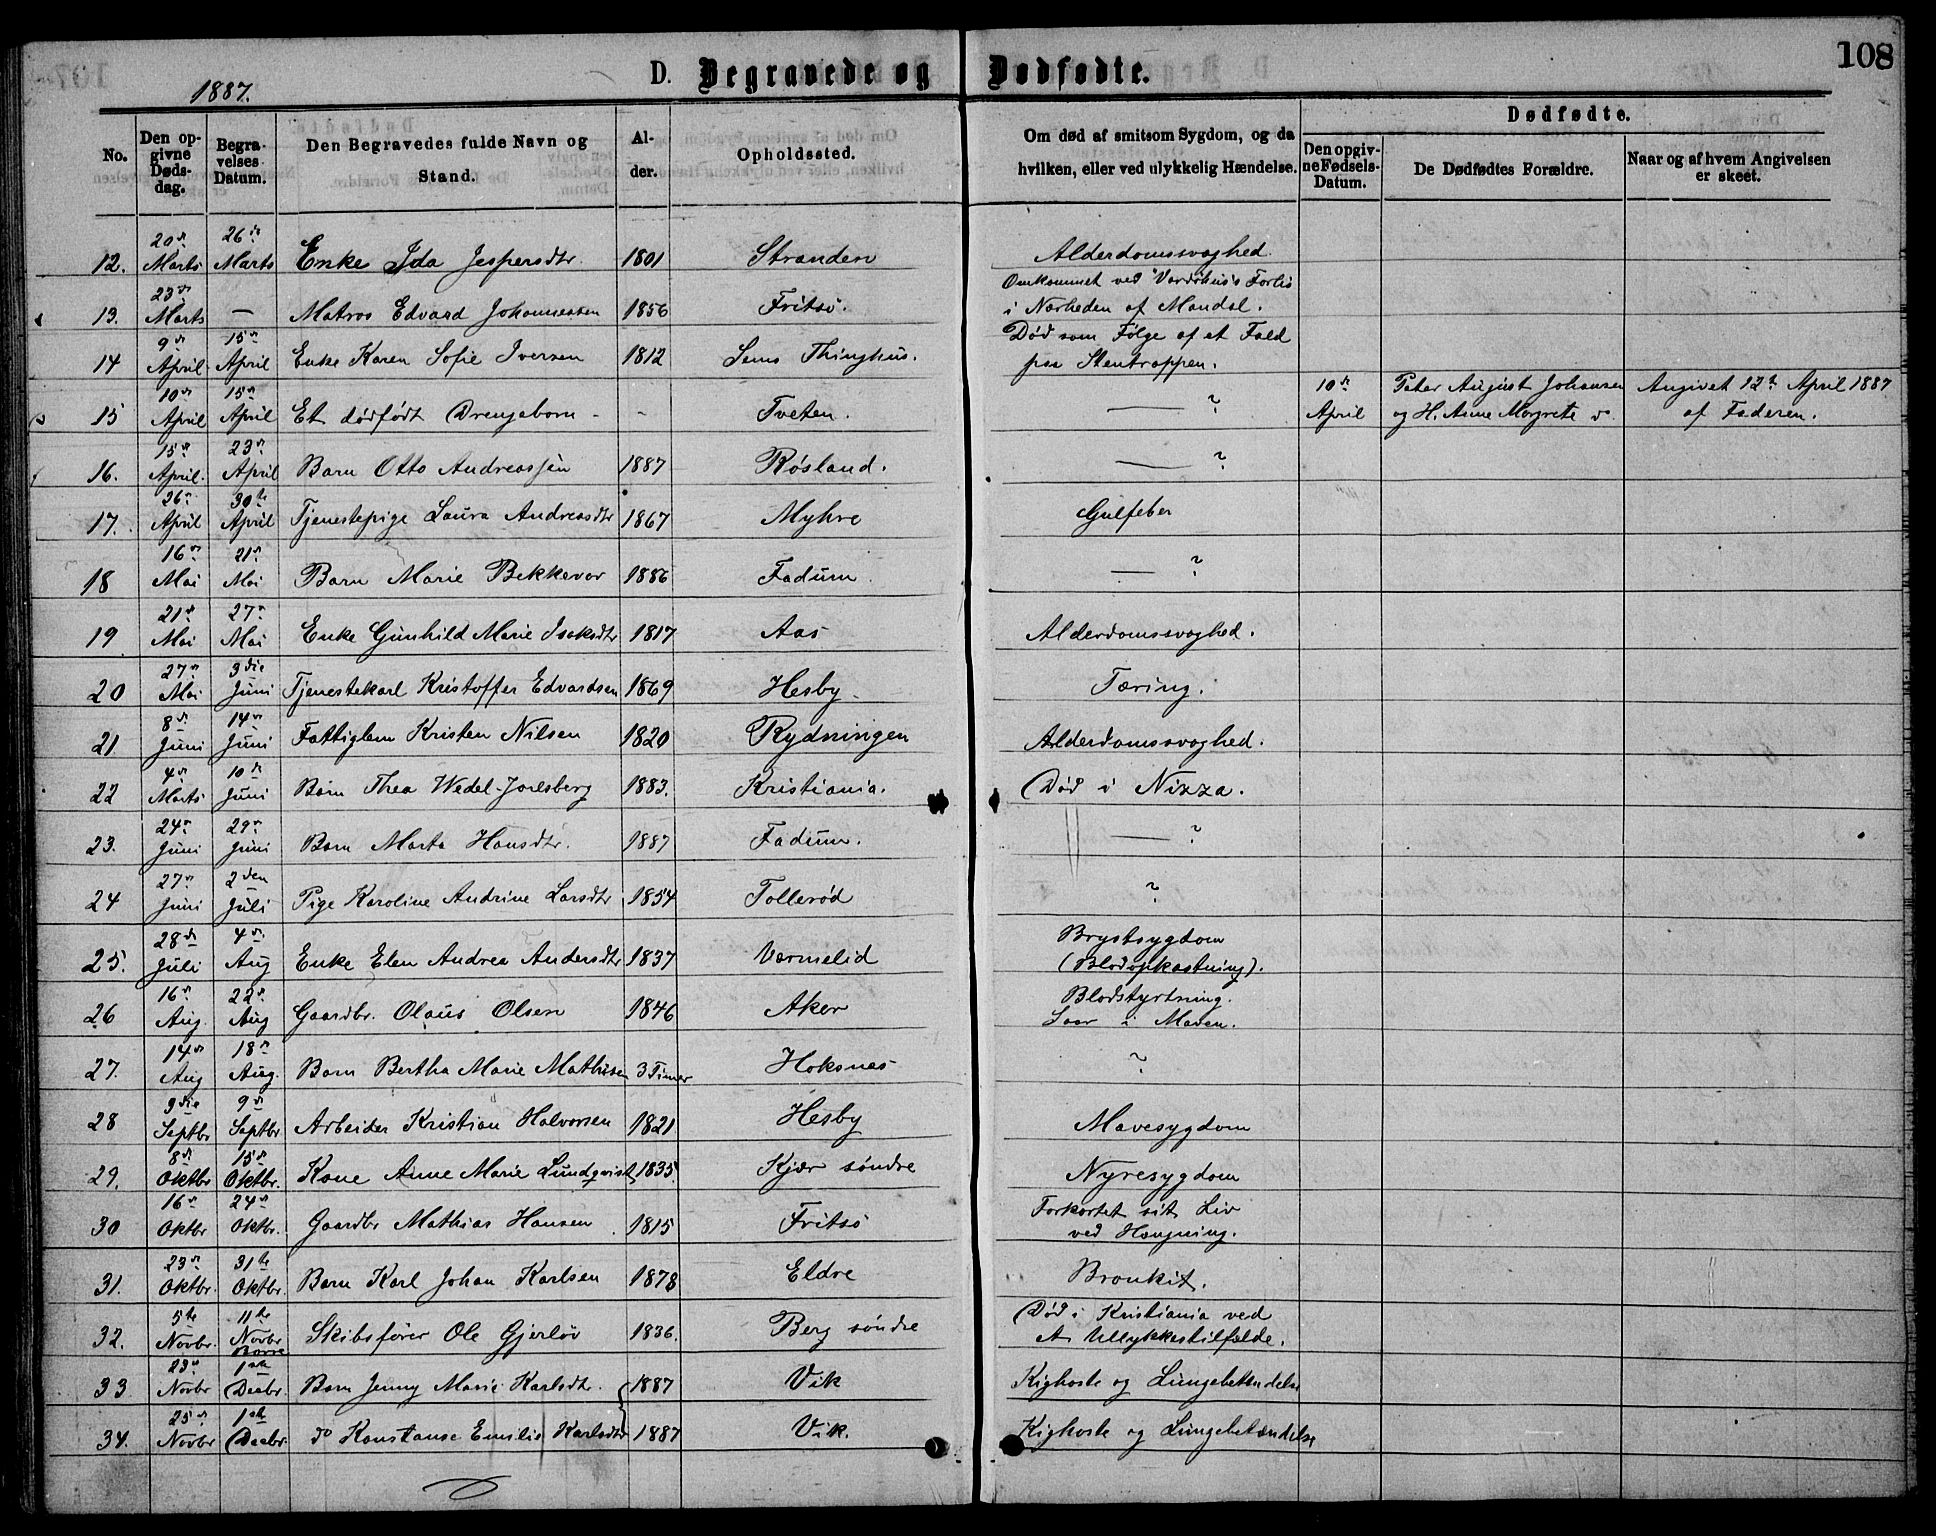 108
1887.
D. Begravede og Dødfødte.
No.
Den opgivne Dødsdag.
Begravelses Datum.
Den Begravedes fulde Navn og Stand.
Alder.
Opholdssted.
Om død af smitsom Sygdom, og da hvilken, eller ved ulykkelig Hændelse.
Dødfødte.
Den opgivne Fødsels-Datum.
De Dødfødtes Forældre.
Naar og af hvem Angivelsen er skeet.
12. 20de Marts 26de Marts Enke Ida Jespersdtr. 1801 Stranden Alderdomssvaghed.
13. 23de Marts — Matros Edvard Johannessen 1856 Fritsø. Omkommet ved "Vardøhus's Forlis i Nærheden af Mandal.
14 9de April 15de April Enke Karen Sofie Iversen 1812 Sems Thinghus. Død som Følge af et Fald paa Stentrappen.
15 10de April 15de April Et dødfødt Drengebarn - - Tveten. — ? 10de April Peter August Johansen og H. Anne Margrete Angivet 12te April 1887 af Faderen.
16. 15de April. 23de April Barn Otto Andreassen 1887 Røsland. — ?
17. 26de April 30te April Tjenestepige Laura Andreasdtr 1867 Myhre Gulfeber
18 16de Mai 21de Mai Barn Marie Bekkevar 1886 Fadum. — ?
19 21de Mai 27de Mai Enke Gunhild Marie Isaksdtr 1817 Aas Alderdomssvaghed.
20 27de Mai 3die Juni Tjenestekarl Kristoffer Edvardsen 1869 Hesby Tæring.
21 8de Juni 14de Juni Fattiglem Kristen Nilsen 1820 Rydningen Alderdomssvaghed.
22 4de Marts 10de Juni Barn Thea Wedel-Jarlsberg 1883. Kristiania. Død i Nizza.
23. 24de Juni 29de Juni Barn Marta Hansdtr. 1887 Fadum. — ?
24 27de Juni 2den Juli Pige Karoline Andrine Larsdtr. 1854 Tollerød ?
25. 28de Juli 4de Aug Enke Elen Andrea Andersdtr 1837 Værmelid Brystsygdom (Blodopkastning).
26 16de Aug. 22de Aug Gaardbr. Olaus Olsen 1846 Aker Blodstyrtning. Saar i Maven.
27. 14de Aug 18de Aug. Barn Bertha Marie Mathisen 3 Timer Hoksnes ?
28 3die Septbr 9de Septbr Arbeider Kristian Halvorsen 1821 Hesby Mavesygdom
29. 8de Oktbr 15de Oktbr. Kone Anne Marie Lundqvist 1835. Kjær søndre Nyresygdom
30 16de Oktbr 24de Oktbr. Gaardbr Mathias Hansen 1815 Fritsø Forkortet sit Liv ved Hængning.
31. 23de Oktbr. 31te Oktbr. Barn Karl Johan Karlsen 1878 Eldre Bronkit.
32. 5te Novbr. 11te Novbr Borre Skibsfører Ole Gjerløv 1836. Berg søndre Død i Kristiania ved et Ullykkestilfælde.
33 23de Novbr 1ste Decbr. Barn Jenny Marie Karlsdtr. 1887 Vik Kighoste og Lungebetændelse
34. 25de Novbr 1ste Decbr. do Konstanse Emilie Karlsdtr 1887 Vik. Kighoste og Lungebetændelse